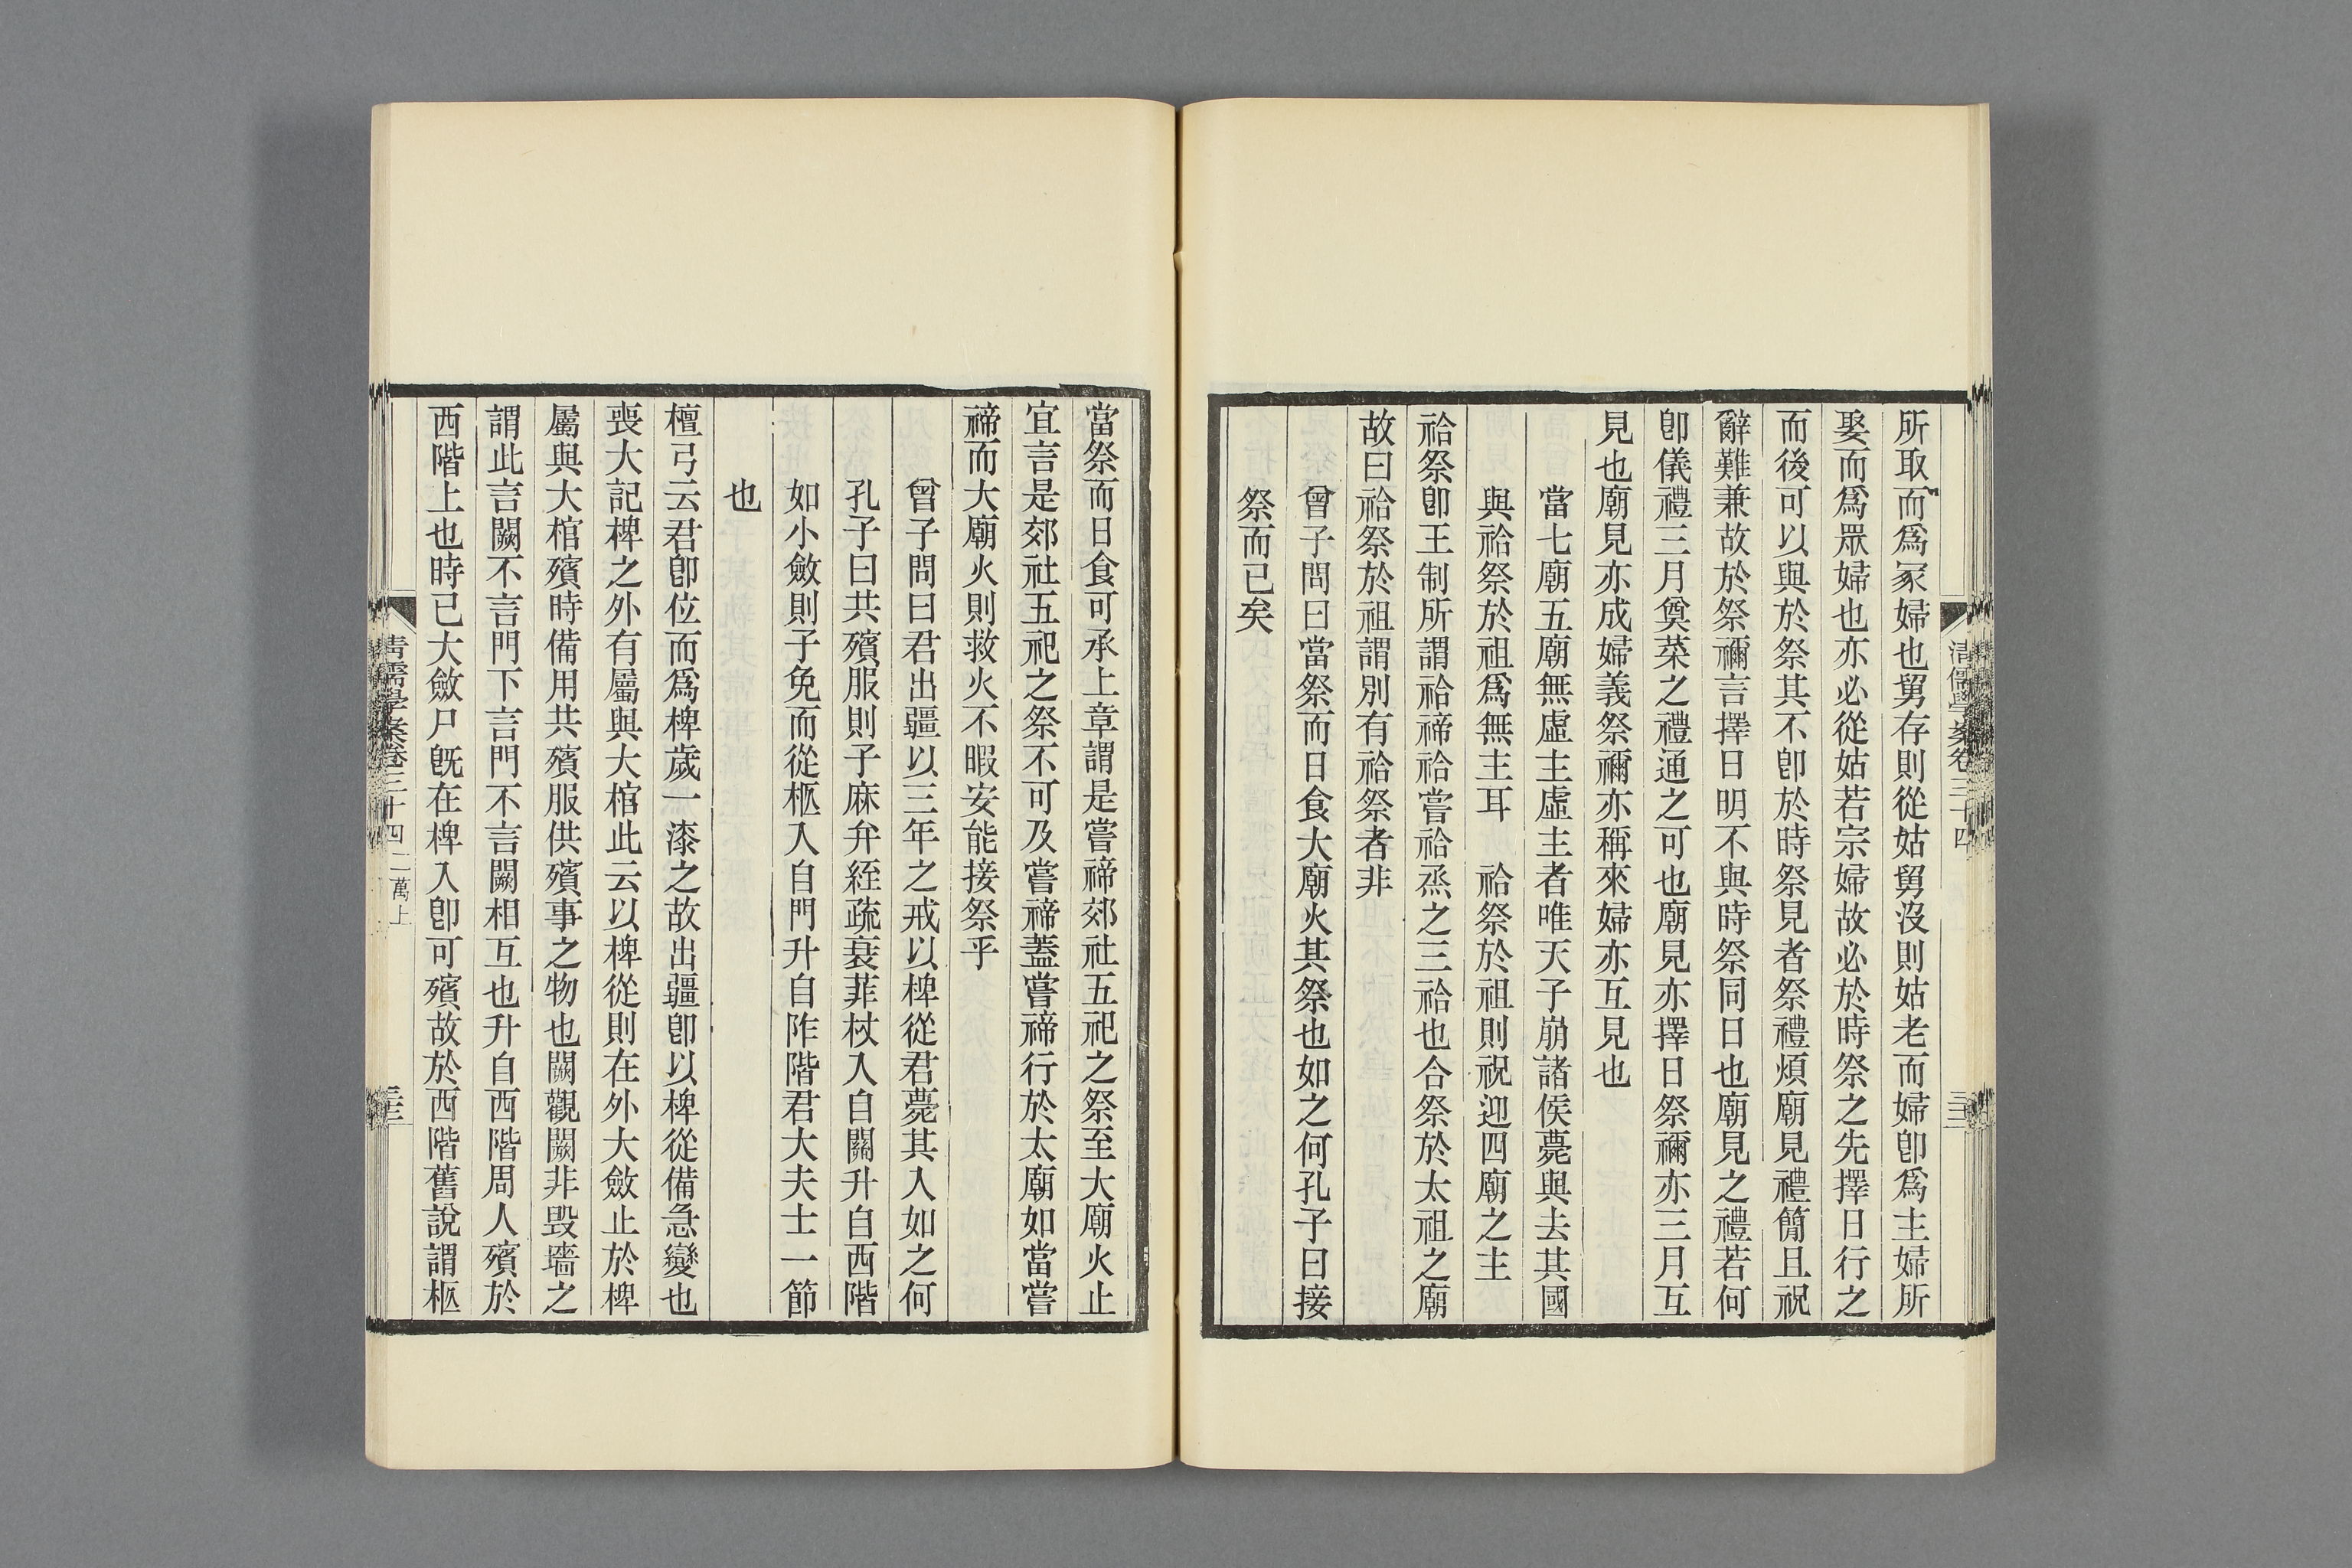 清儒學案卷三十四
所取而爲冢婦也舅存則從姑舅沒則姑老而婦卽爲主婦所
娶而爲眾婦也亦必從姑若宗婦故必於時祭之先擇日行之
而後可以與於祭其不卽於時祭見者祭禮煩廟見禮簡且祝
辭難兼故於祭禰言擇日明不與時祭同日也廟見之禮若何
卽儀禮三月奠菜之禮通之可也廟見亦擇日祭禰亦三月互
見也廟見亦成婦義祭禰亦稱來婦亦互見也
當七廟五廟無虛主虛主者唯天子崩諸侯薨與去其國
與祫祭於祖爲無主耳　祫祭於祖則祝迎四廟之主
祫祭卽王制所謂祫禘祫嘗祫烝之三祫也合祭於太祖之廟
故曰祫祭於祖謂別有祫祭者非
曾子問曰當祭而日食大廟火其祭也如之何孔子曰接
祭而已矣
當祭而日食可承上章謂是嘗禘郊社五祀之祭至大廟火止
宜言是郊社五祀之祭不可及嘗禘蓋嘗禘行於太廟如當嘗
禘而大廟火則救火不暇安能接祭乎
曾子問曰君出疆以三年之戒以椑從君薨其入如之何
孔子曰共殯服則子麻弁絰疏衰菲杖入自闕升自西階
如小斂則子免而從柩入自門升自阼階君大夫士一節
也
檀弓云君卽位而爲椑歲一漆之故出疆卽以椑從備急變也
喪大記椑之外有屬與大棺此云以椑從則在外大斂止於椑
屬與大棺殯時備用共殯服供殯事之物也闕觀闕非毀墻之
謂此言闕不言門下言門不言闕相互也升自西階周人殯於
西階上也時已大斂尸旣在椑入卽可殯故於西階舊說謂柩
清儒學案卷三十四
二萬上